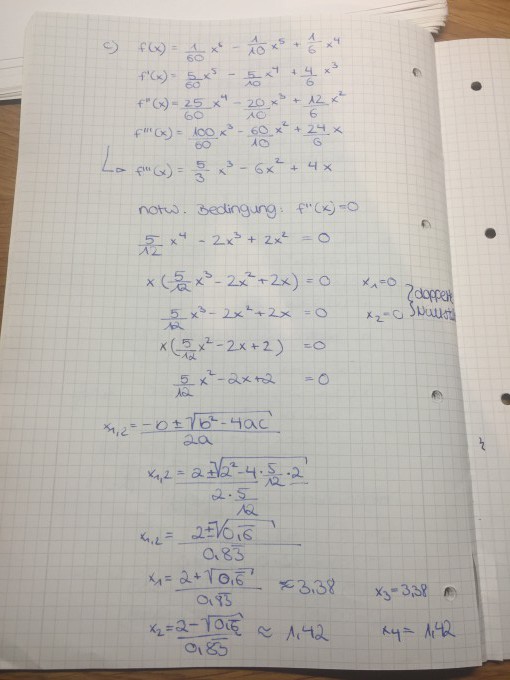 c) f(x) = 1/60 x⁶ - 1/10 x⁵ + 1/6 x⁴
f'(x) = 5/60 x⁵ - 5/10 x⁴ + 4/6 x³
f''(x) = 25/60 x⁴ - 20/10 x³ + 12/6 x²
f'''(x) = 100/60 x³ - 60/10 x² + 24/6 x
↳ f'''(x) = 5/3 x³ - 6x² + 4x
notw. Bedingung: f''(x) = 0
5/12 x⁴ - 2x³ + 2x² = 0
x(5/12 x³ - 2x² + 2x) = 0 x₁=0
5/12 x³ - 2x² + 2x = 0 x₂=0
x(5/12 x² - 2x + 2) = 0
5/12 x² - 2x + 2 = 0
x₁,₂ = (-b ± √(b² - 4ac))/(2a)
x₁,₂ = (2 ± √(2² - 4 · 5/12 · 2))/(2 · 5/12)
x₁,₂ = (2 ± √(0,6̅))/(0,83̅)
x₁ = (2 + √(0,6̅))/(0,83̅) ≈ 3,38 x₃ = 3,38
x₂ = (2 - √(0,6̅))/(0,83̅) ≈ 1,42 x₄ = 1,42